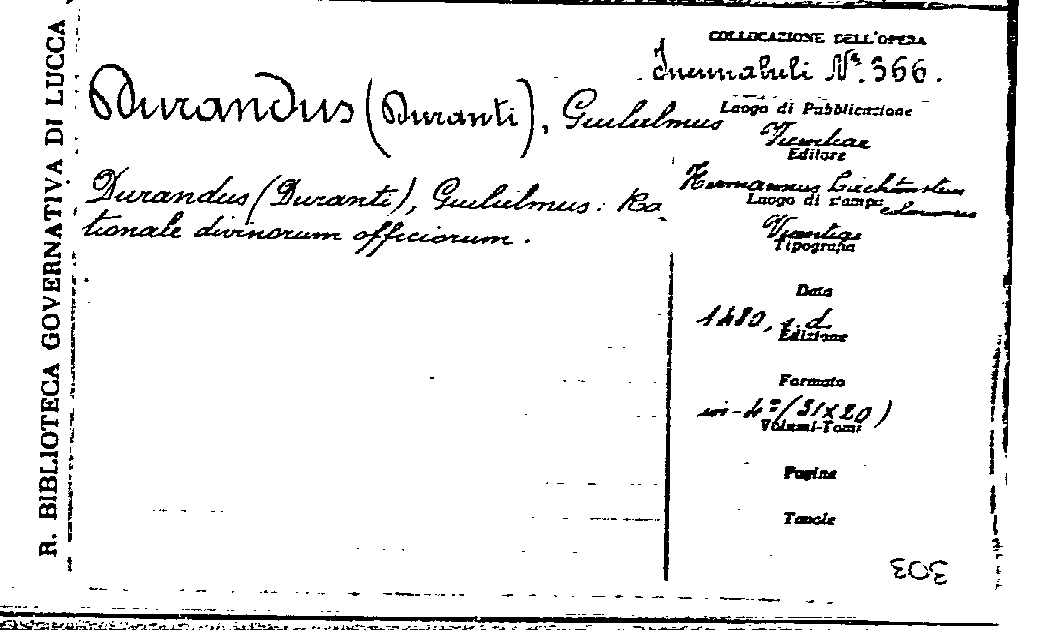 R. BIBLIOTECA GOVERNATIVA DI LUCCA
Durandus (Duranti), Gulielmus
Durandus (Duranti), Gulielmus: Ra-
tionale divinorum officiorum.
COLLOCAZIONE DELL'OPERA
Incunabuli N.° 366.
Luogo di Pubblicazione
Editore
Hermannus
Luogo di stampa
Tipografia
Data
1480, s. d.
Edizione
Formato
in-4° (31x20)
Volumi-Tomi
Pagine
Tavole
303